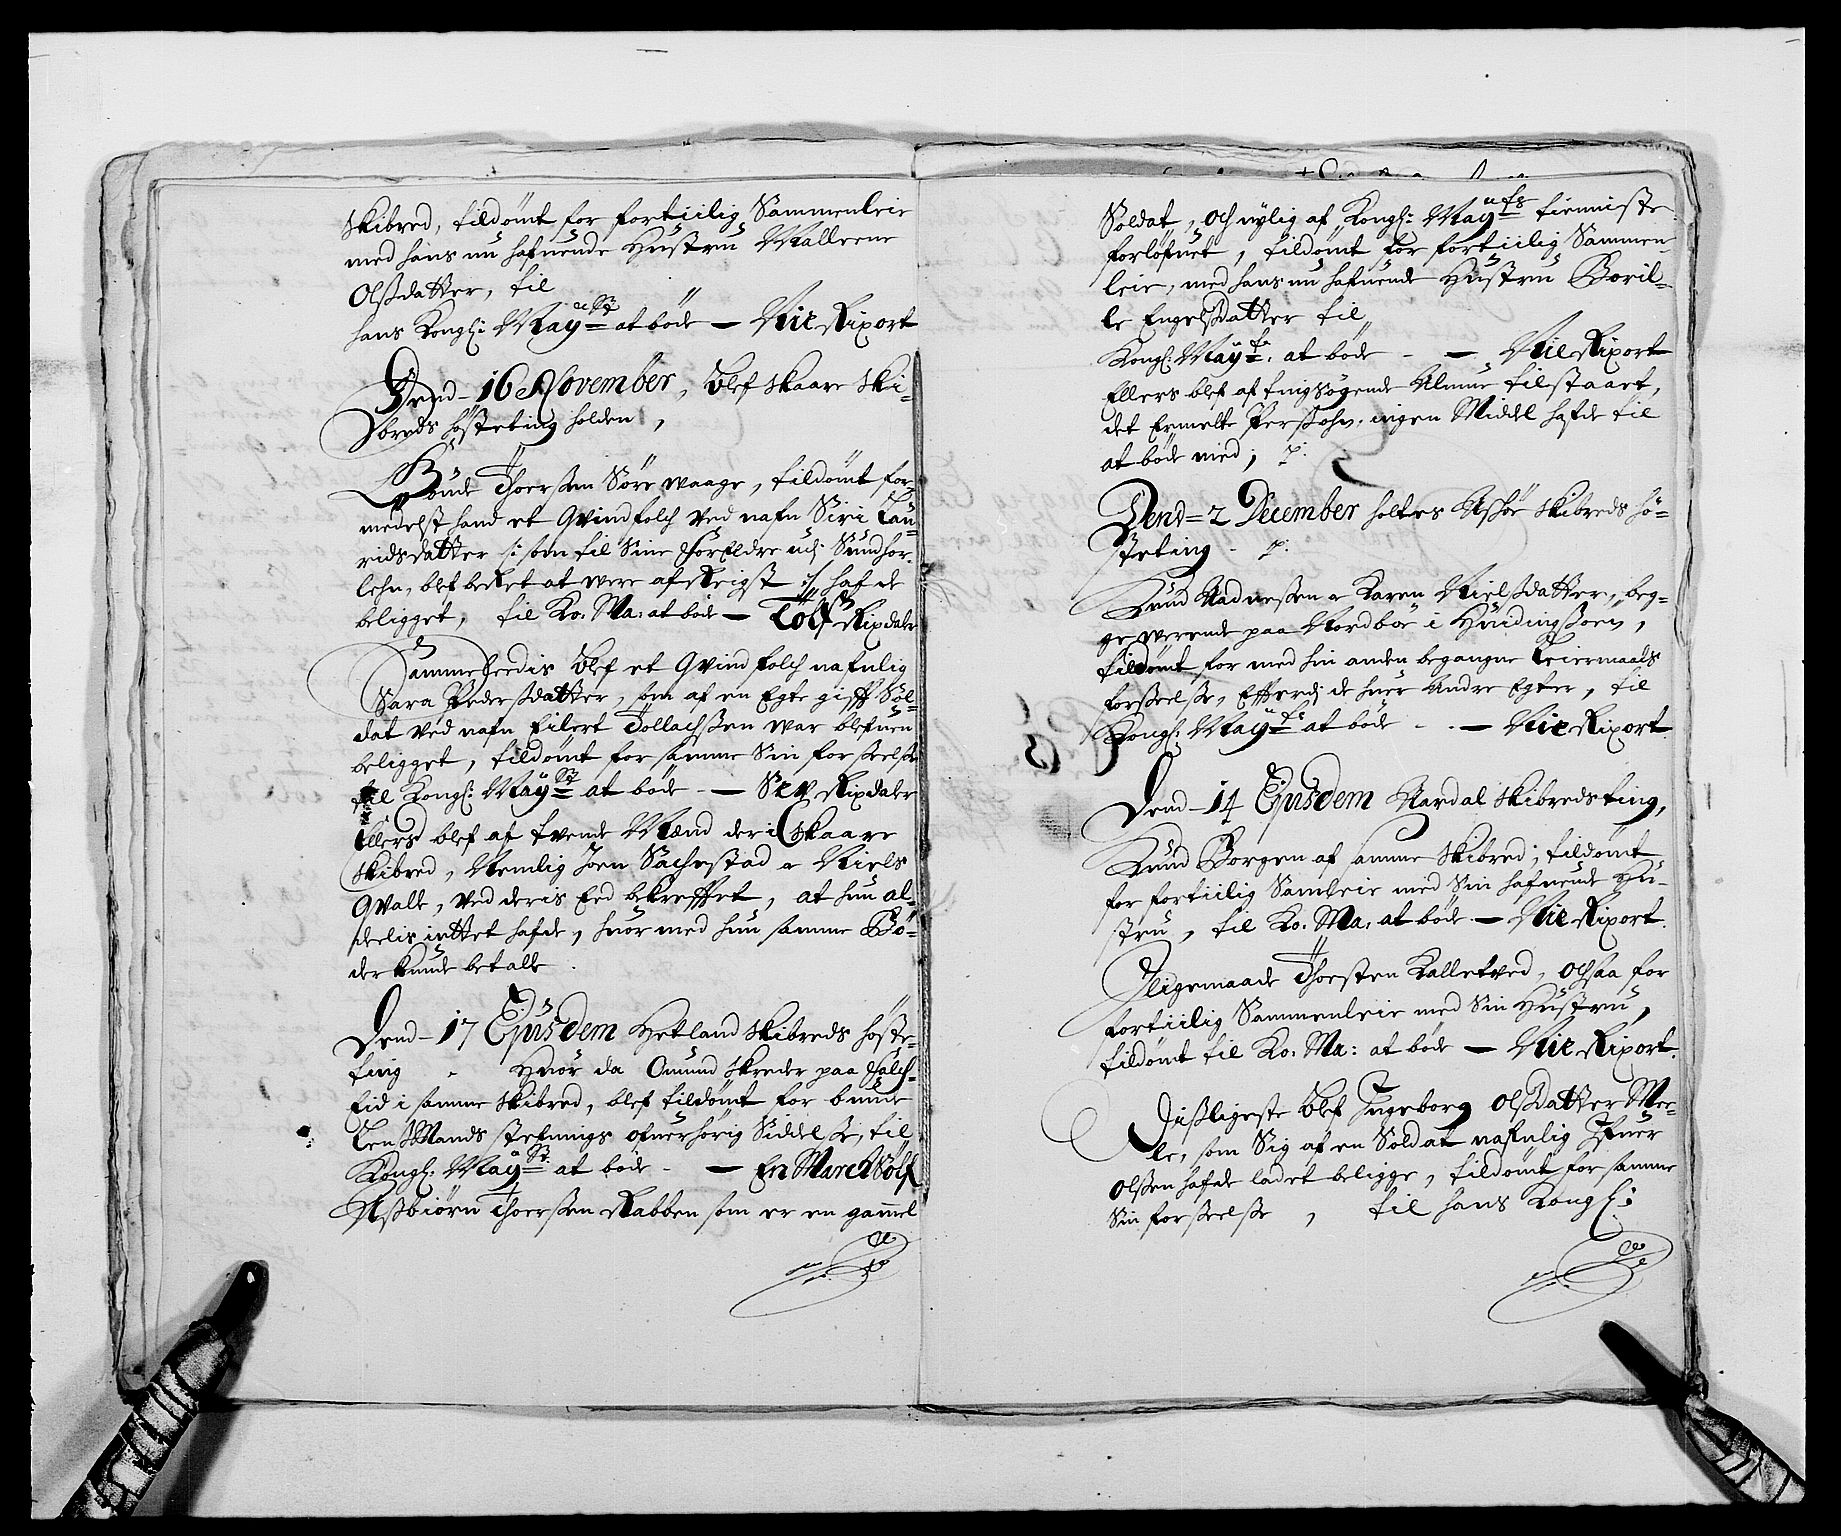 Skibred, tildømt for fortiilig Sammenleie
med hans nu hafuende Hustru Malleene
Olßdatter, til
hans Kongl: May:tt at bøde — Niie Rixort
Dend 16 November, blef Skaare Ski-
breds høsteting holden,
Gude Thorßen Søre Waage, tildømt for-
medelst hand et Qvindfolch ved nafn Siri Lau-
ridsdatter /: som til Sine Foreldre udj Sundhor-
lehn, blef berettet at were afReigst :/ hafde
beligget, til Ko: Ma: at bøde — Tolf Rixdaler
Sammesteedis blef et Qvindfolch nafnlig
Sara Pedersdatter, som af en Egte gifft Sol-
dat ved nafn Eilert Tollachßen war blefuen
beligget, tildømt for samme Sin forseelße
til Kongl: May:tt at bøde — Sex Rixdaler
Ellers blef af tvende Mænd der i Skaare
Skibred, Nemlig Joen Sachestad & Niels
Qvale, ved deris Eed bekrefftet, at hun al-
deelis inttet hafde, huormed hun samme Bø-
der kunde betalle.
Dend 17 Ejusdem Hetland Skibreds høste-
ting Huor da Omund Skreder paa Folch-
Eid i samme Skibred, blef tildømt for bunde
LensMands stefnings ofuerhørig Siddelße, til
Kongl: May:tt at bøde — En March Sølf
Aßbiørn Thorßen Rabben som er en gammel
Soldat, och nylig af Kongl: May:tts tienniste
forløfuet, tildømt for fortiilig Sammen-
leie, med hans nu hafuende Hustru Boril-
le Engelßdatter til
Kongl: May:tt at bøde — Niie Rixort
Ellers blef af tingsøgende Almue tilstaaet,
det Ermelte Perßohn, ingen Middel hafde til
at bøde med;
Dend 2 December holtes Aschøe Skibreds hø-
steting
Knud Aadneßen & Karen Nielßdatter, beg-
ge werende paa Nordbøe i Hundingßoen,
tildømt for med hin anden begangne Leiermaals
forseelße, Efterdj de huer Andre Egter, til
Kongl: May:tt at bøde — Niie Rixort
Dend 14 Ejusdem Aardal Skibredsting,
Knud Borgen af samme Skibred; tildømt
for fortiilig Samleie med Sin hafuende Hu-
stru, til Ko: Ma: at bøde — Niie Rixort
Iligemaade Thorsten Kalletved, ochsaa for
fortiilig Sammenleie med Sin Hustru,
tildømt til Ko: Ma: at bøde — Niie Rixort.
Dißligeste blef Ingeborg Olßdatter Mee-
le, som Sig af en Soldat nafnlig Ifuer
Olßen hafde ladet beligge, tildømt for samme
Sin forseelße, til hans Kongl: